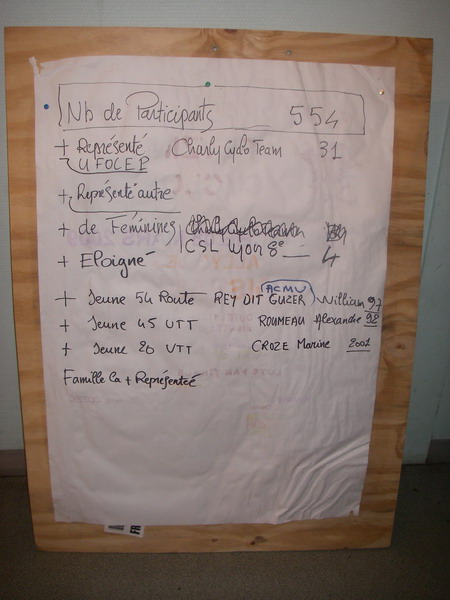 Nb de Participants 554
+ Représenté Charly Cyclo Team 31
UFOLEP
+ Représenté autre
+ de Féminines
CSL Lyon 8e 4
+ Eloigné
ACMV
+ Jeune 54 Route REY DIT GUZER William 97
+ Jeune 45 VTT ROUMEAU Alexandre 92
+ Jeune 20 VTT CROZE Marine 2001
Famille la + Représentée